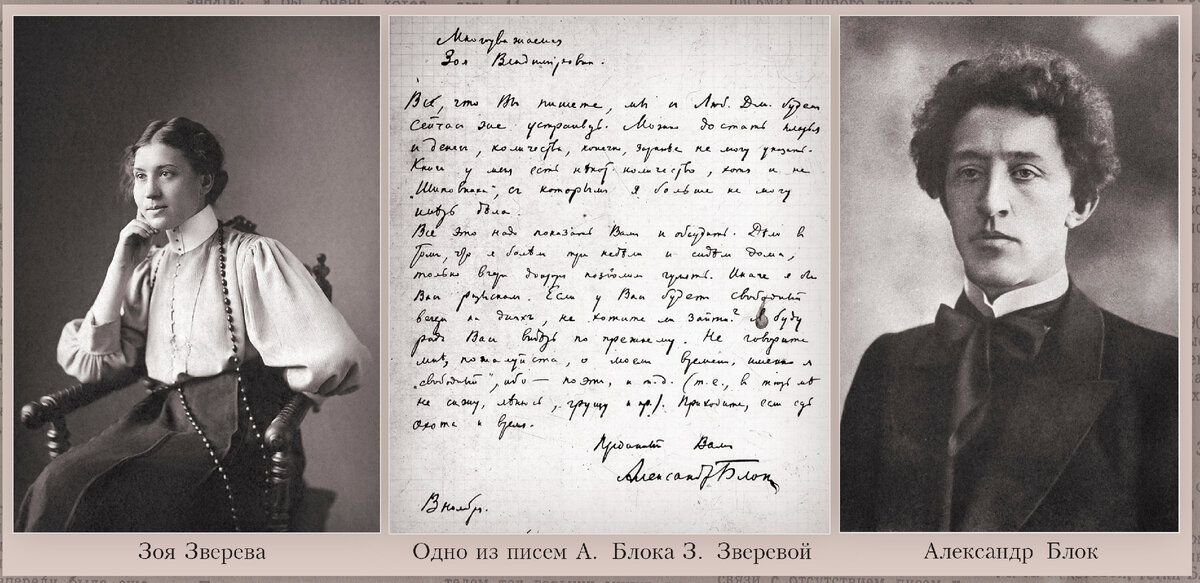 Многоуважаемая
Зоя Владимировна.
Всё, что Вы пишете, мы и Люб. Дм. будем
сейчас же устраивать. Можно достать платья
и деньги, количества, конечно, заранее не могу указать.
Книг у меня есть некот. количество, хотя и не
„Шиповника", с которым я больше не могу
иметь дела.
Все это надо показать Вам и обсудить. Дело в
том, что я болен три недели и сидел дома,
только вчера доктор позволил гулять. Иначе я бы
Вас разыскал. Если у Вас будет свободный
вечер на днях, не хотите ли зайти? Я буду
рад Вас видеть по прежнему. Не говорите
мне, пожалуйста, о моем времени, именно я
„свободный", ибо — поэт, и т.д. (т.е., в
не сижу, ленюсь, грущу и пр.). Приходите, если есть
охота и время.
Преданный Вам
Александр Блок
ноябр.
Зоя Зверева
Одно из писем А. Блока З. Зверевой
Александр Блок